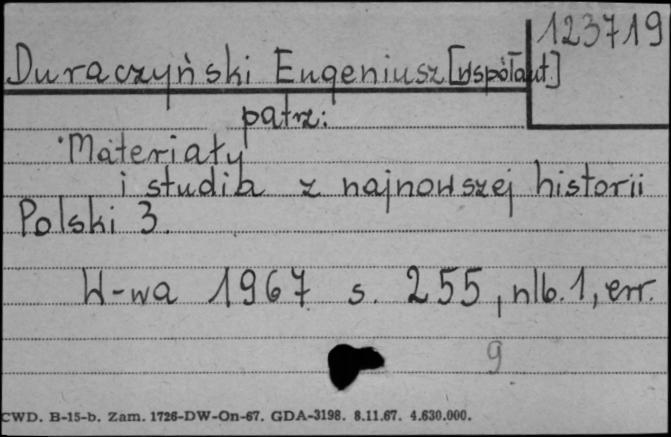 123719
Duraczyński Eugeniusz [współaut.]
patrz:
Materiały
i studia z najnowszej historii
Polski 3.
W-wa 1967 s. 255, nlb. 1, err.
9
CWD. B-15-b. Zam. 1726-DW-On-67. GDA-3198. 8.11.67. 4.630.000.